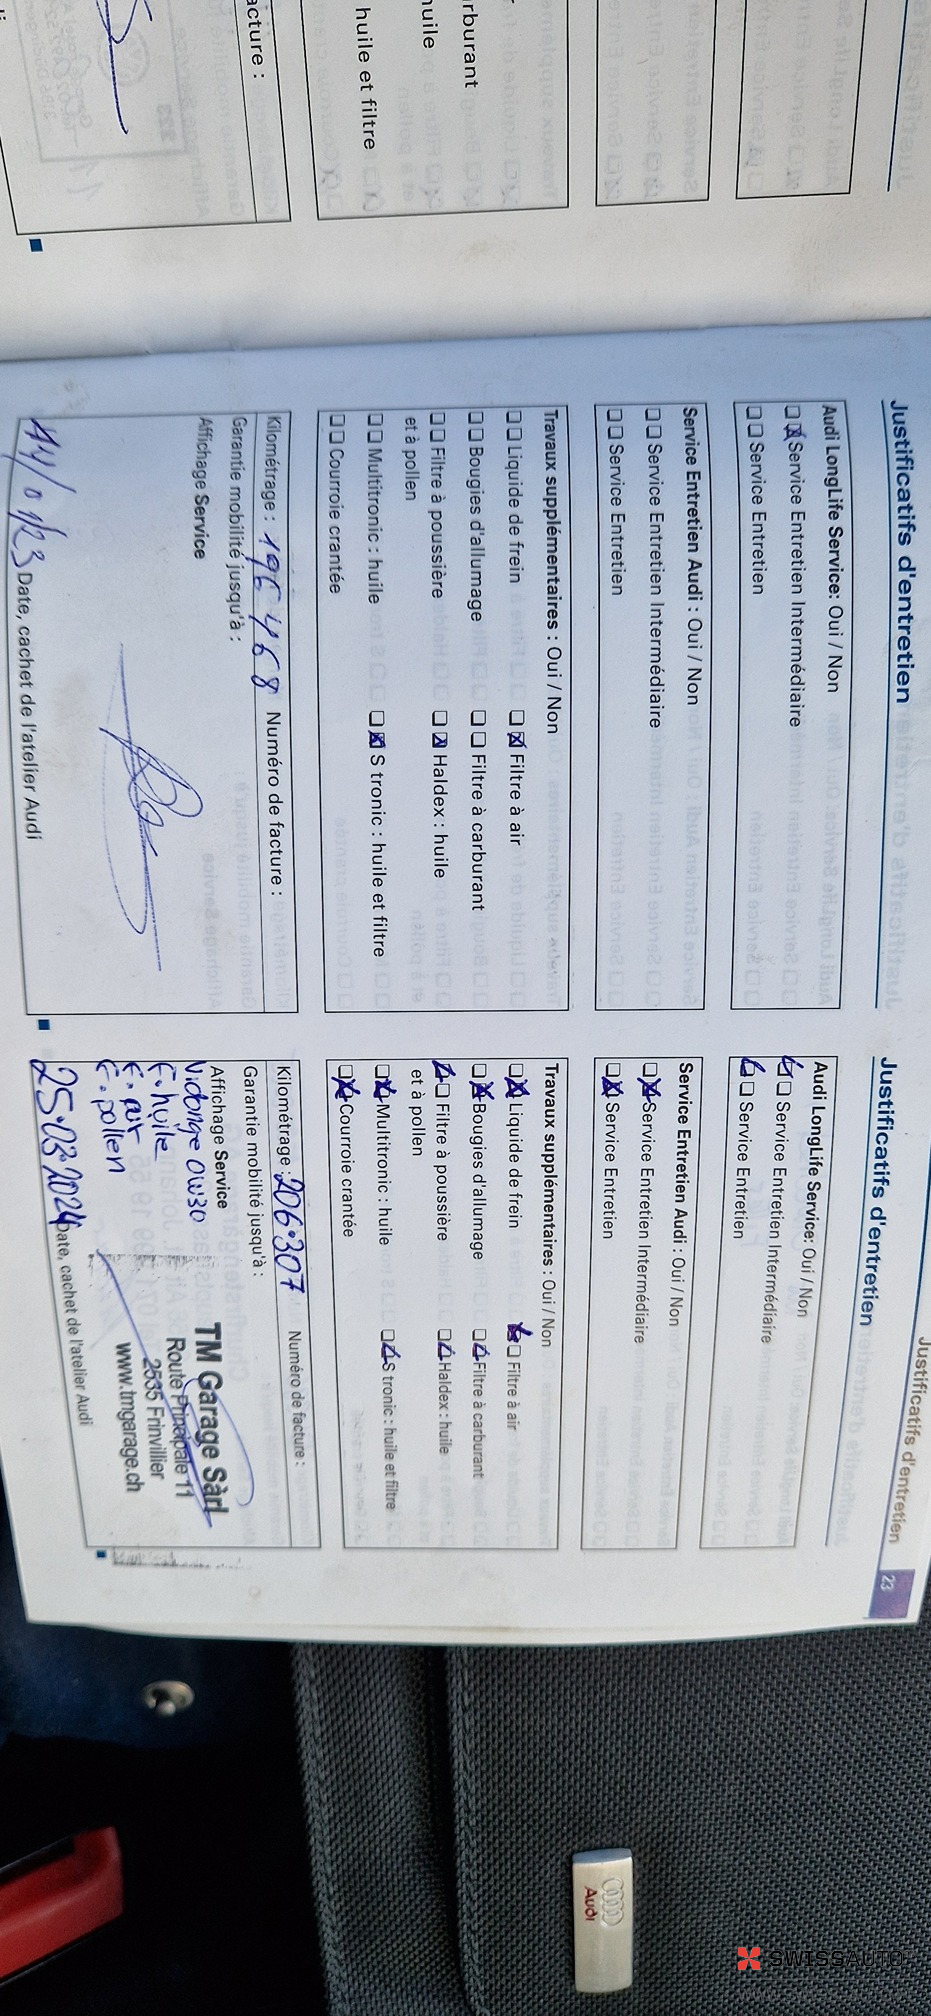 acture :
huile et filtre
huile
rburant
Justificatifs d'entretien
23
Justificatifs d'entretien
Audi LongLife Service: Oui / Non
Service Entretien Intermédiaire
Service Entretien
Service Entretien Audi : Oui / Non
Service Entretien Intermédiaire
Service Entretien
Travaux supplémentaires : Oui / Non
Liquide de frein Filtre à air
Bougies d'allumage Filtre à carburant
Filtre à poussière Haldex : huile
et à pollen
Multitronic : huile S tronic : huile et filtre
Courroie crantée
Kilométrage : 196 468 Numéro de facture :
Garantie mobilité jusqu'à :
Affichage Service
Date, cachet de l'atelier Audi
Justificatifs d'entretien
Audi LongLife Service: Oui / Non
Service Entretien Intermédiaire
Service Entretien
Service Entretien Audi : Oui / Non
Service Entretien Intermédiaire
Service Entretien
Travaux supplémentaires : Oui / Non
Liquide de frein Filtre à air
Bougies d'allumage Filtre à carburant
Filtre à poussière Haldex : huile
et à pollen
Multitronic : huile S tronic : huile et filtre
Courroie crantée
Kilométrage : 206.307 Numéro de facture :
Garantie mobilité jusqu'à :
Affichage Service
Vidange 0W30
F. huile
F. air
F. pollen
TM Garage Sàrl
Route Principale 11
2535 Frinvillier
www.tmgarage.ch
25.03.2024 Date, cachet de l'atelier Audi
Audi
SWISSAUTO